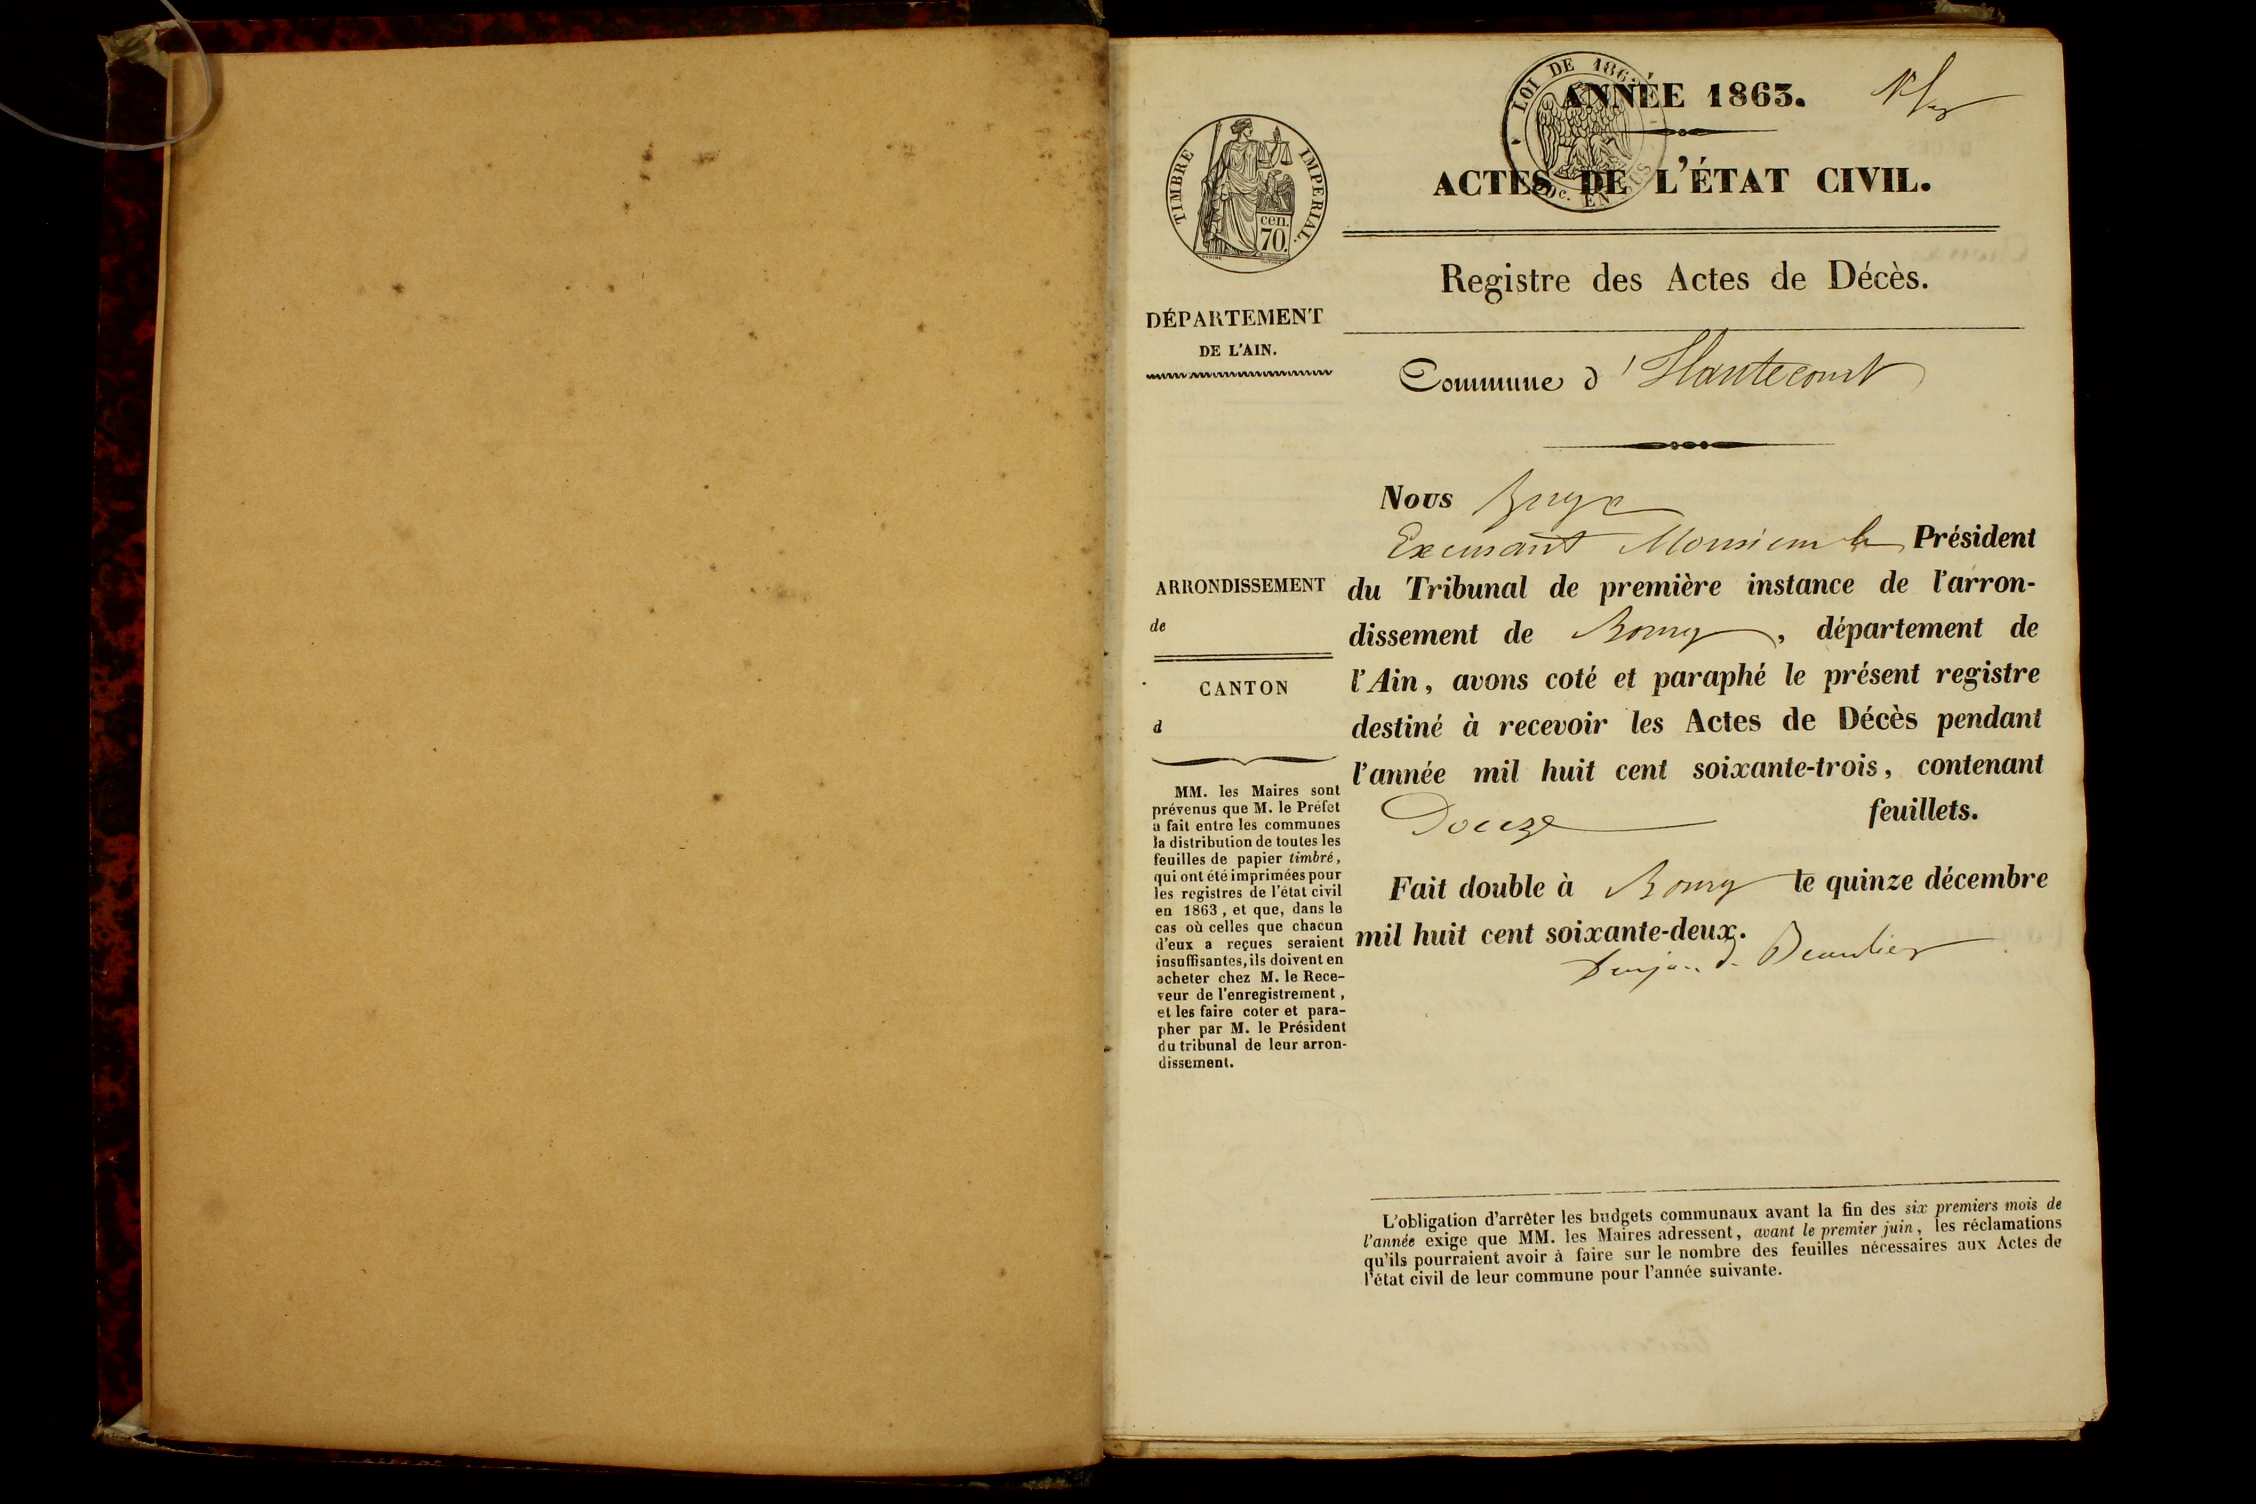 LOI DE 1862
ANNÉE 1863.
ACTES DE L'ÉTAT CIVIL.
Dc. EN SUS
TIMBRE IMPERIAL.
cen.
70.
Registre des Actes de Décès.
DÉPARTEMENT
DE L'AIN.
Commune d' Hautecourt
Nous
Monsieur le Président
ARRONDISSEMENT
de
du Tribunal de première instance de l'arron-
dissement de Bourg, département de
l'Ain, avons coté et paraphé le présent registre
destiné à recevoir les Actes de Décès pendant
l'année mil huit cent soixante-trois, contenant
Douze feuillets.
Fait double à Bourg le quinze décembre
mil huit cent soixante-deux.
CANTON
d
MM. les Maires sont
prévenus que M. le Préfet
a fait entre les communes
la distribution de toutes les
feuilles de papier timbré,
qui ont été imprimées pour
les registres de l'état civil
en 1863, et que, dans le
cas où celles que chacun
d'eux a reçues seraient
insuffisantes, ils doivent en
acheter chez M. le Rece-
veur de l'enregistrement,
et les faire coter et para-
pher par M. le Président
du tribunal de leur arron-
dissement.
L'obligation d'arrêter les budgets communaux avant la fin des six premiers mois de
l'année exige que MM. les Maires adressent, avant le premier juin, les réclamations
qu'ils pourraient avoir à faire sur le nombre des feuilles nécessaires aux Actes de
l'état civil de leur commune pour l'année suivante.